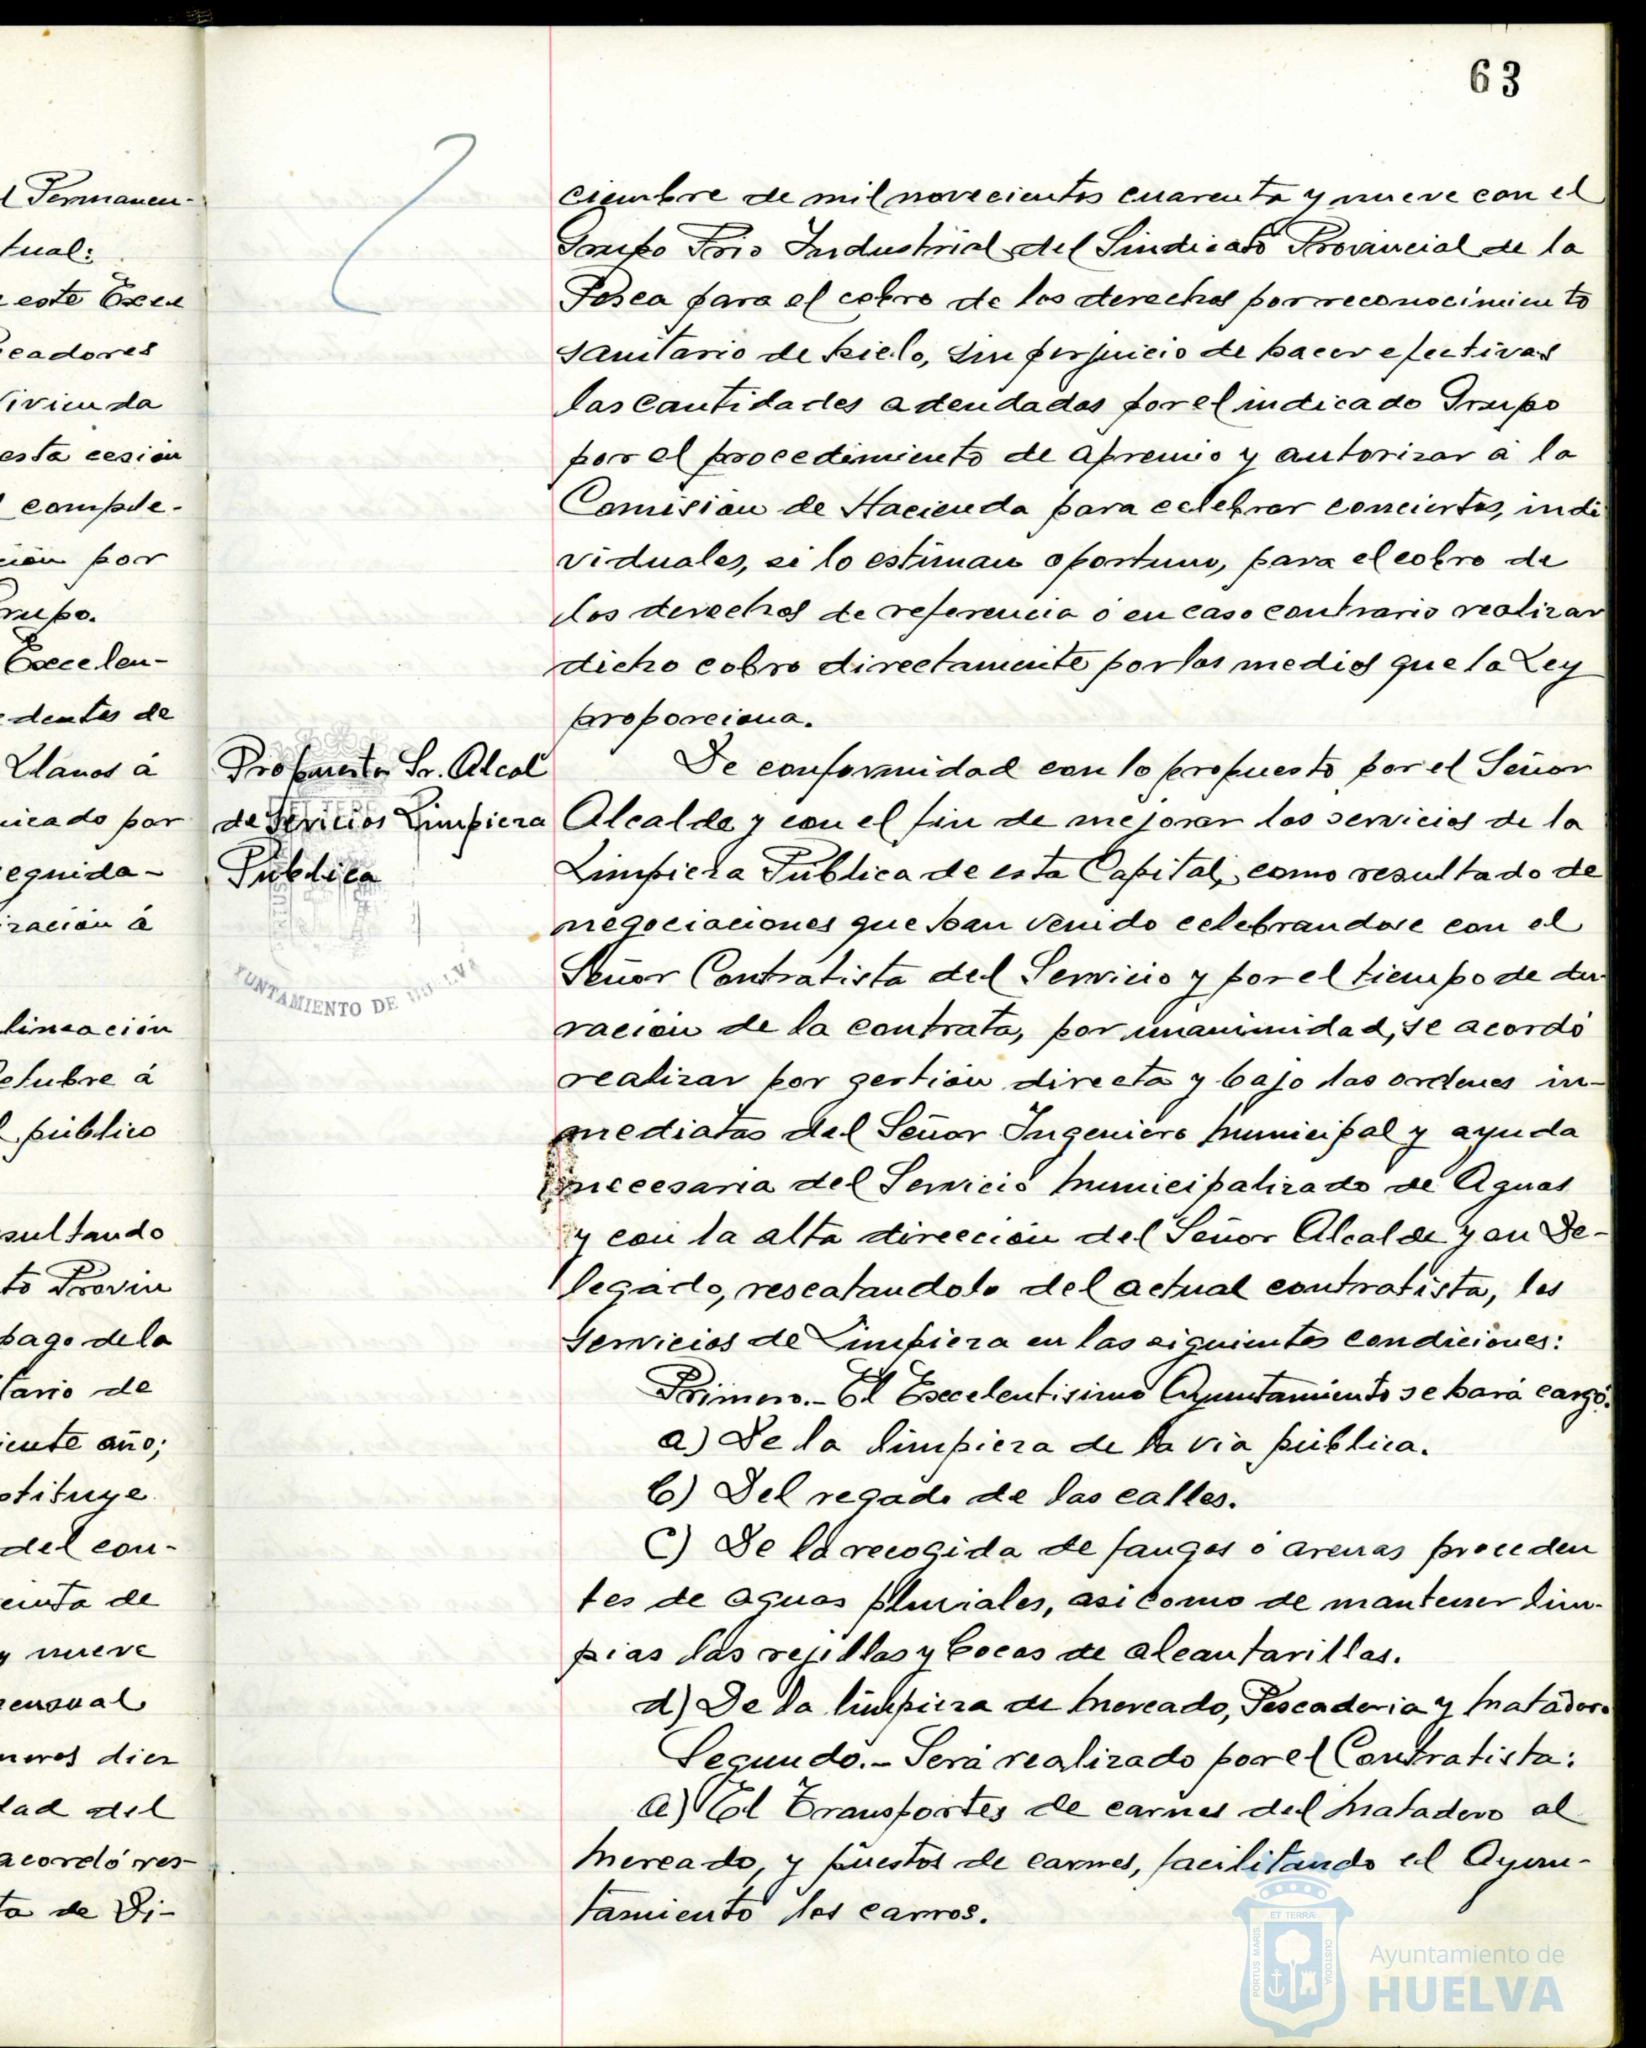 63
l Permanen-
tual:
e este Exce
eadores
Vivienda
esta cesión
l comple-
ción por
rupo.
Excelen-
dentes de
Llanos á
nicado por
eguida-
ización á
lineación
ctubre á
l público
sultando
to Provin
pago de la
tario de
iente año;
stituye
del con-
enta de
y nueve
ensual
meros diez
dad del
acordó res-
ta de Di-
Propuesta Sr. Alcal
de servicios Limpieza
Pública
YUNTAMIENTO DE HUELVA
ciembre de mil novecientos cuarenta y nueve con el
Grupo Frio Industrial del Sindicato Provincial de la
Pesca para el cobro de los derechos por reconocimiento
sanitario de hielo, sin perjuicio de hacer efectivas
las cantidades adeudadas por el indicado Grupo
por el procedimiento de apremio y autorizar á la
Comisión de Hacienda para celebrar conciertos, indi
viduales, si lo estiman oportuno, para el cobro de
los derechos de referencia ó en caso contrario realizar
dicho cobro directamente por los medios que la Ley
proporciona.
De conformidad con lo propuesto por el Señor
Alcalde y con el fin de mejorar los servicios de la
Limpieza Pública de esta Capital, como resultado de
negociaciones que han venido celebrandose con el
Señor Contratista del Servicio y por el tiempo de du-
ración de la contrata, por unanimidad, se acordó
realizar por gestión directa y bajo las ordenes in-
mediatas del Señor Ingeniero Municipal y ayuda
necesaria del Servicio Municipalizado de Aguas
y con la alta dirección del Señor Alcalde y su De-
legado, rescatandolo del actual contratista, los
servicios de Limpieza en las siguientes condiciones:
Primero.- El Excelentisimo Ayuntamiento se hará cargo:
a) De la limpieza de la via pública.
b) Del regado de las calles.
c) De la recogida de fangos ó arenas proceden
tes de aguas pluviales, asi como de mantener lim-
pias las rejillas y bocas de alcantarillas.
d) De la limpieza de Mercado, Pescaderia y Matadero
Segundo.- Será realizado por el Contratista:
a) El Transportes de carnes del Matadero al
Mercado, y puestos de carnes, facilitando el Ayun-
tamiento los carros.
PORTUS MARIS
ET TERRÆ
CUSTODIA
Ayuntamiento de
HUELVA